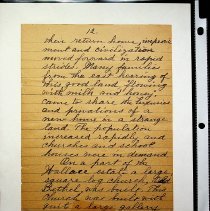 12.
their return home, improve-
ment and civilization
moved forward in rapid
strides. Many families
from the east hearing of
this good land "flowing
with milk and honey"
came to share the
and privations of a
new home in a strange
land. The population
increased rapidly and
churches and school
houses were in demand
On a part of the
Wallace estate a large
square log church,
Bethel, was built. This
Church was built with
quit a large gallery